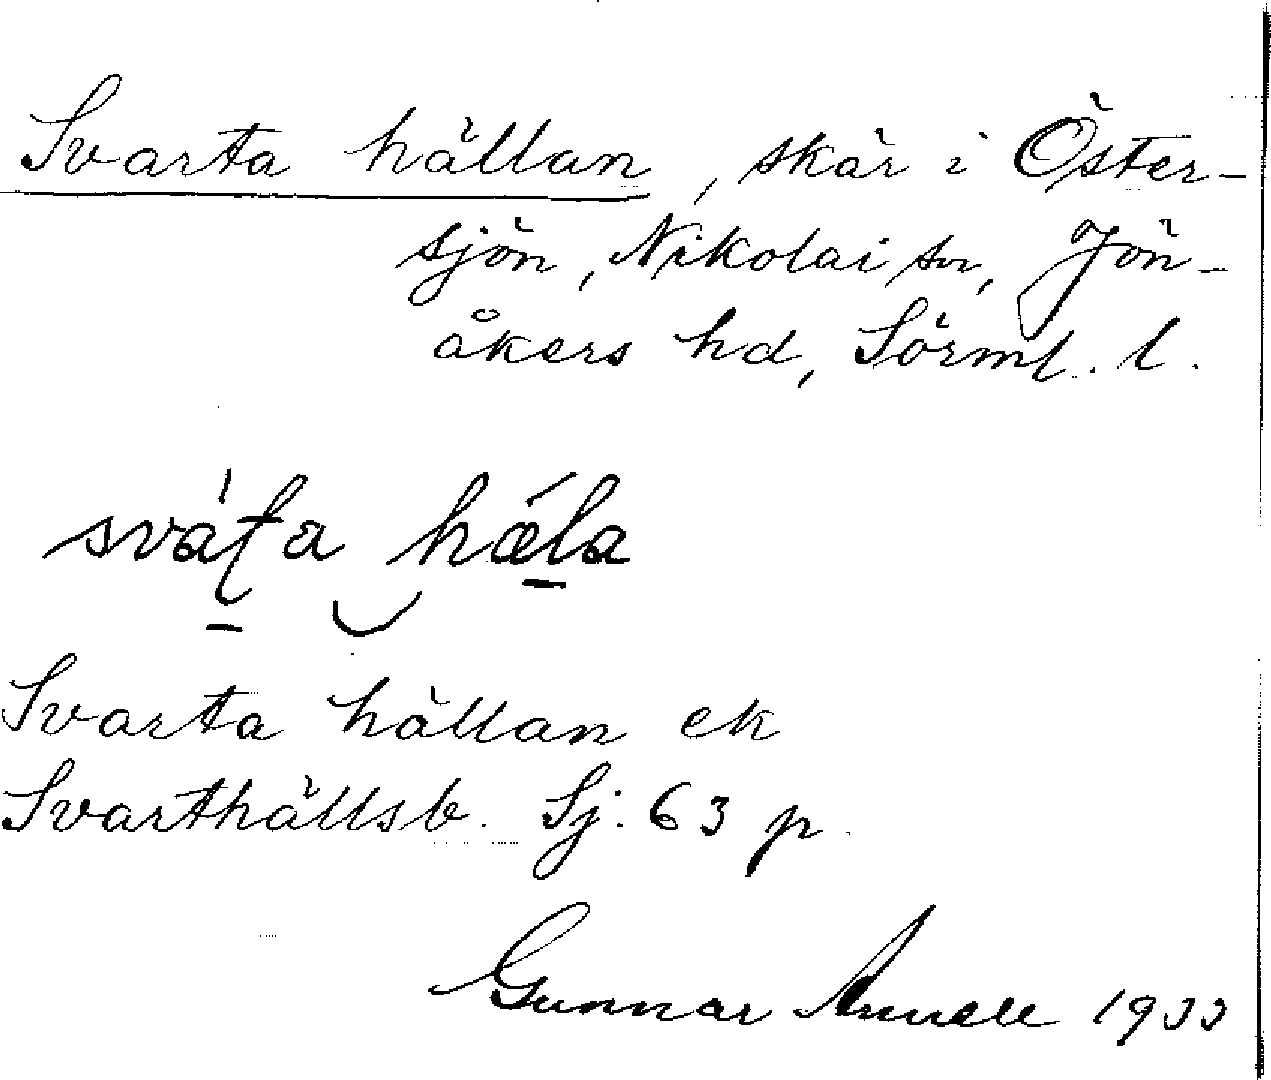 Svarta hällan, skär i Öster-
sjön, Nikolai sn, Jön-
åkers hd, Sörml. l.
sváʈa hǽla
Svarta hällan ek
Svarthällsb. Sj: 63 p.
Gunnar Annell 1933